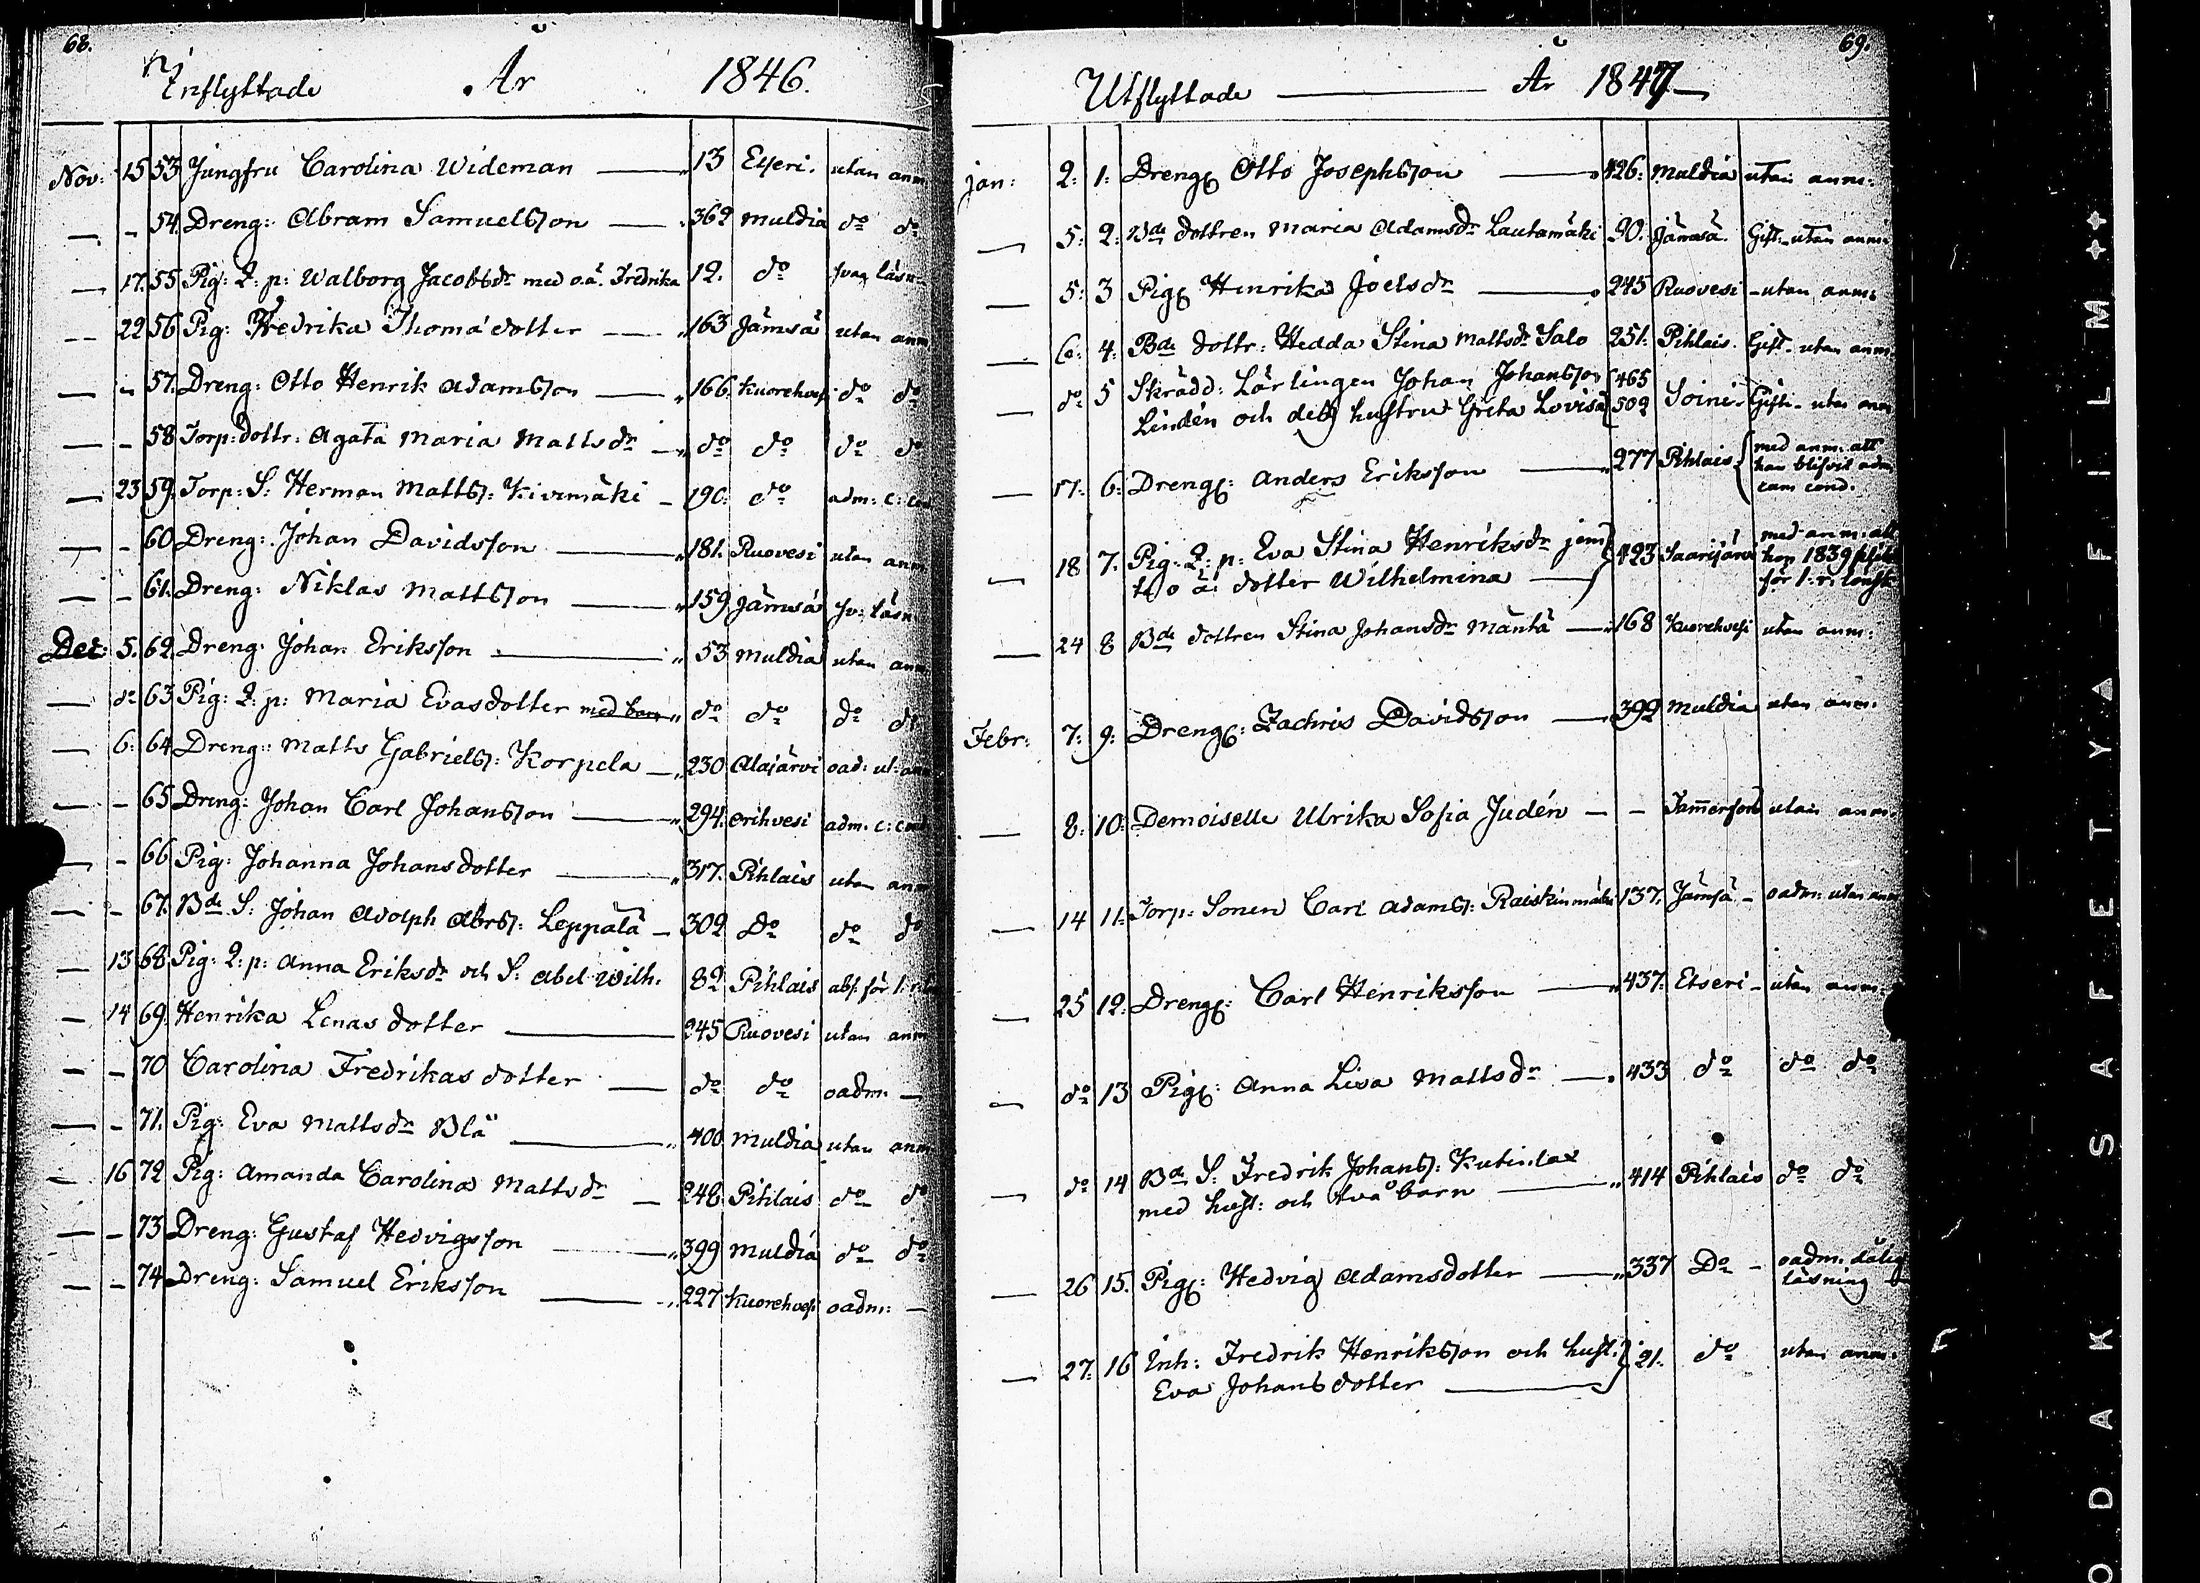 68.
Inflyttade År 1846.
Nov: 15 53 Jungfru Carolina Wideman 13 Etseri. utan anm
— - 54. Dreng: Abram Samuelsson 362 Muldia do do
— 17. 55 Pig: Q: p: Walborg Jacobsdr med o.ä. Fredrika 12. do svag läsn
— 22 56 Pig: Fredrika Thomædotter 163 Jämsä utan anm
— - 57. Dreng: Otto Henrik Adamsson 166. Kuorehvesi do do
— - 58 Torp: dottr: Agata Maria Mattsdr do do do do
— 23 59. Torp: S: Herman Matts: Kivimäki 190. do adm: c: con
— - 60 Dreng: Johan Davidsson 181. Ruovesi utan anm
— - 61. Dreng: Niklas Mattsson 159 Jämsä sv: läsn
Dec: 5. 62. Dreng: Johan Eriksson 53 Muldia utan anm
— do 63 Pig: Q: p: Maria Evasdotter med barn do do do do
— 6: 64 Dreng: Matts Gabriels: Korpela 230 Alajärvi oad: ut: anm
— - 65 Dreng: Johan Carl Johansson 294. Orihvesi adm. c: cond
— - 66 Pig: Johanna Johansdotter 317. Pihlais utan anm
— - 67. Bde S: Johan Adolph Abrs: Leppälä 302 Do do do
— 13 68 Pig: Q: p: Anna Eriksdr och S: Abel Wilh. 82 Pihlais abs. för l:
— 14 69. Henrika Lenasdotter 245 Ruovesi utan anm
— - 70 Carolina Fredrikasdotter do do oadm: —
— - 71. Pig: Eva Mattsdr Blå 400 Muldia utan anm
— 16 72 Pig: Amanda Carolina Mattsdr 248 Pihlais do do
— - 73 Dreng: Gustaf Hedvigsson 399 Muldia do do
— - 74 Dreng: Samuel Eriksson 227 Kuorehvesi oadm: —
69.
Utflyttade — År 1847 —
Jan: 2: 1: Dreng: Otto Josephsson 426: Muldia utan anm:
— 5: 2: Bde dottren Maria Adamsdr Lautamäki 90. Jämsä. Gift. utan anm:
— 5: 3 Pig: Henrika Joelsdr 245 Ruovesi - utan anm:
— 6: 4: Bde dottr: Hedda Stina Mattsdr Salo 251: Pihlais. Gift. utan anm:
— do 5 Skrädd: Lärlingen Johan Johansson 465
Lindén och dess hustru Greta Lovisa 502 Soini - Gift. utan anm
— 17: 6: Dreng: Anders Eriksson 277 Pihlais med anm: att
han blifvit adm
cum cond.
— 18 7. Pig: Q: p: Eva Stina Henriksdr jemte 423 Saarijärvi med anm: att
o ä: dotter Wilhelmina hon 1839
för l: r: lönsk
— 24 8 Bde dottren Stina Johansdr Mäntä 168 Kuorehvesi utan anm:
Febr: 7: 9: Dreng: Zachris Davidsson 392 Muldia utan anm:
— 8: 10: Demoiselle Ulrika Sofia Judén — - Tammerfors utan anm:
— 14 11: Torp: Sonen Carl Adams: Raiskinmäki 137. Jämsä - oadm: utan anm
— 25 12: Dreng: Carl Henriksson 437. Etseri - utan anm:
— do 13 Pig: Anna Lisa Mattsdr 433 do do do
— do 14 Bde S: Fredrik Johans: Kutinlax 414 Pihlais do do
med hust: och två barn
— 26 15. Pig: Hedvig Adamsdotter 337 Do - oadm: dålig
läsning
— 27: 16 Inh: Fredrik Henriksson och hust: 21. do utan anm:
Eva Johansdotter
KODAK SAFETY FILM